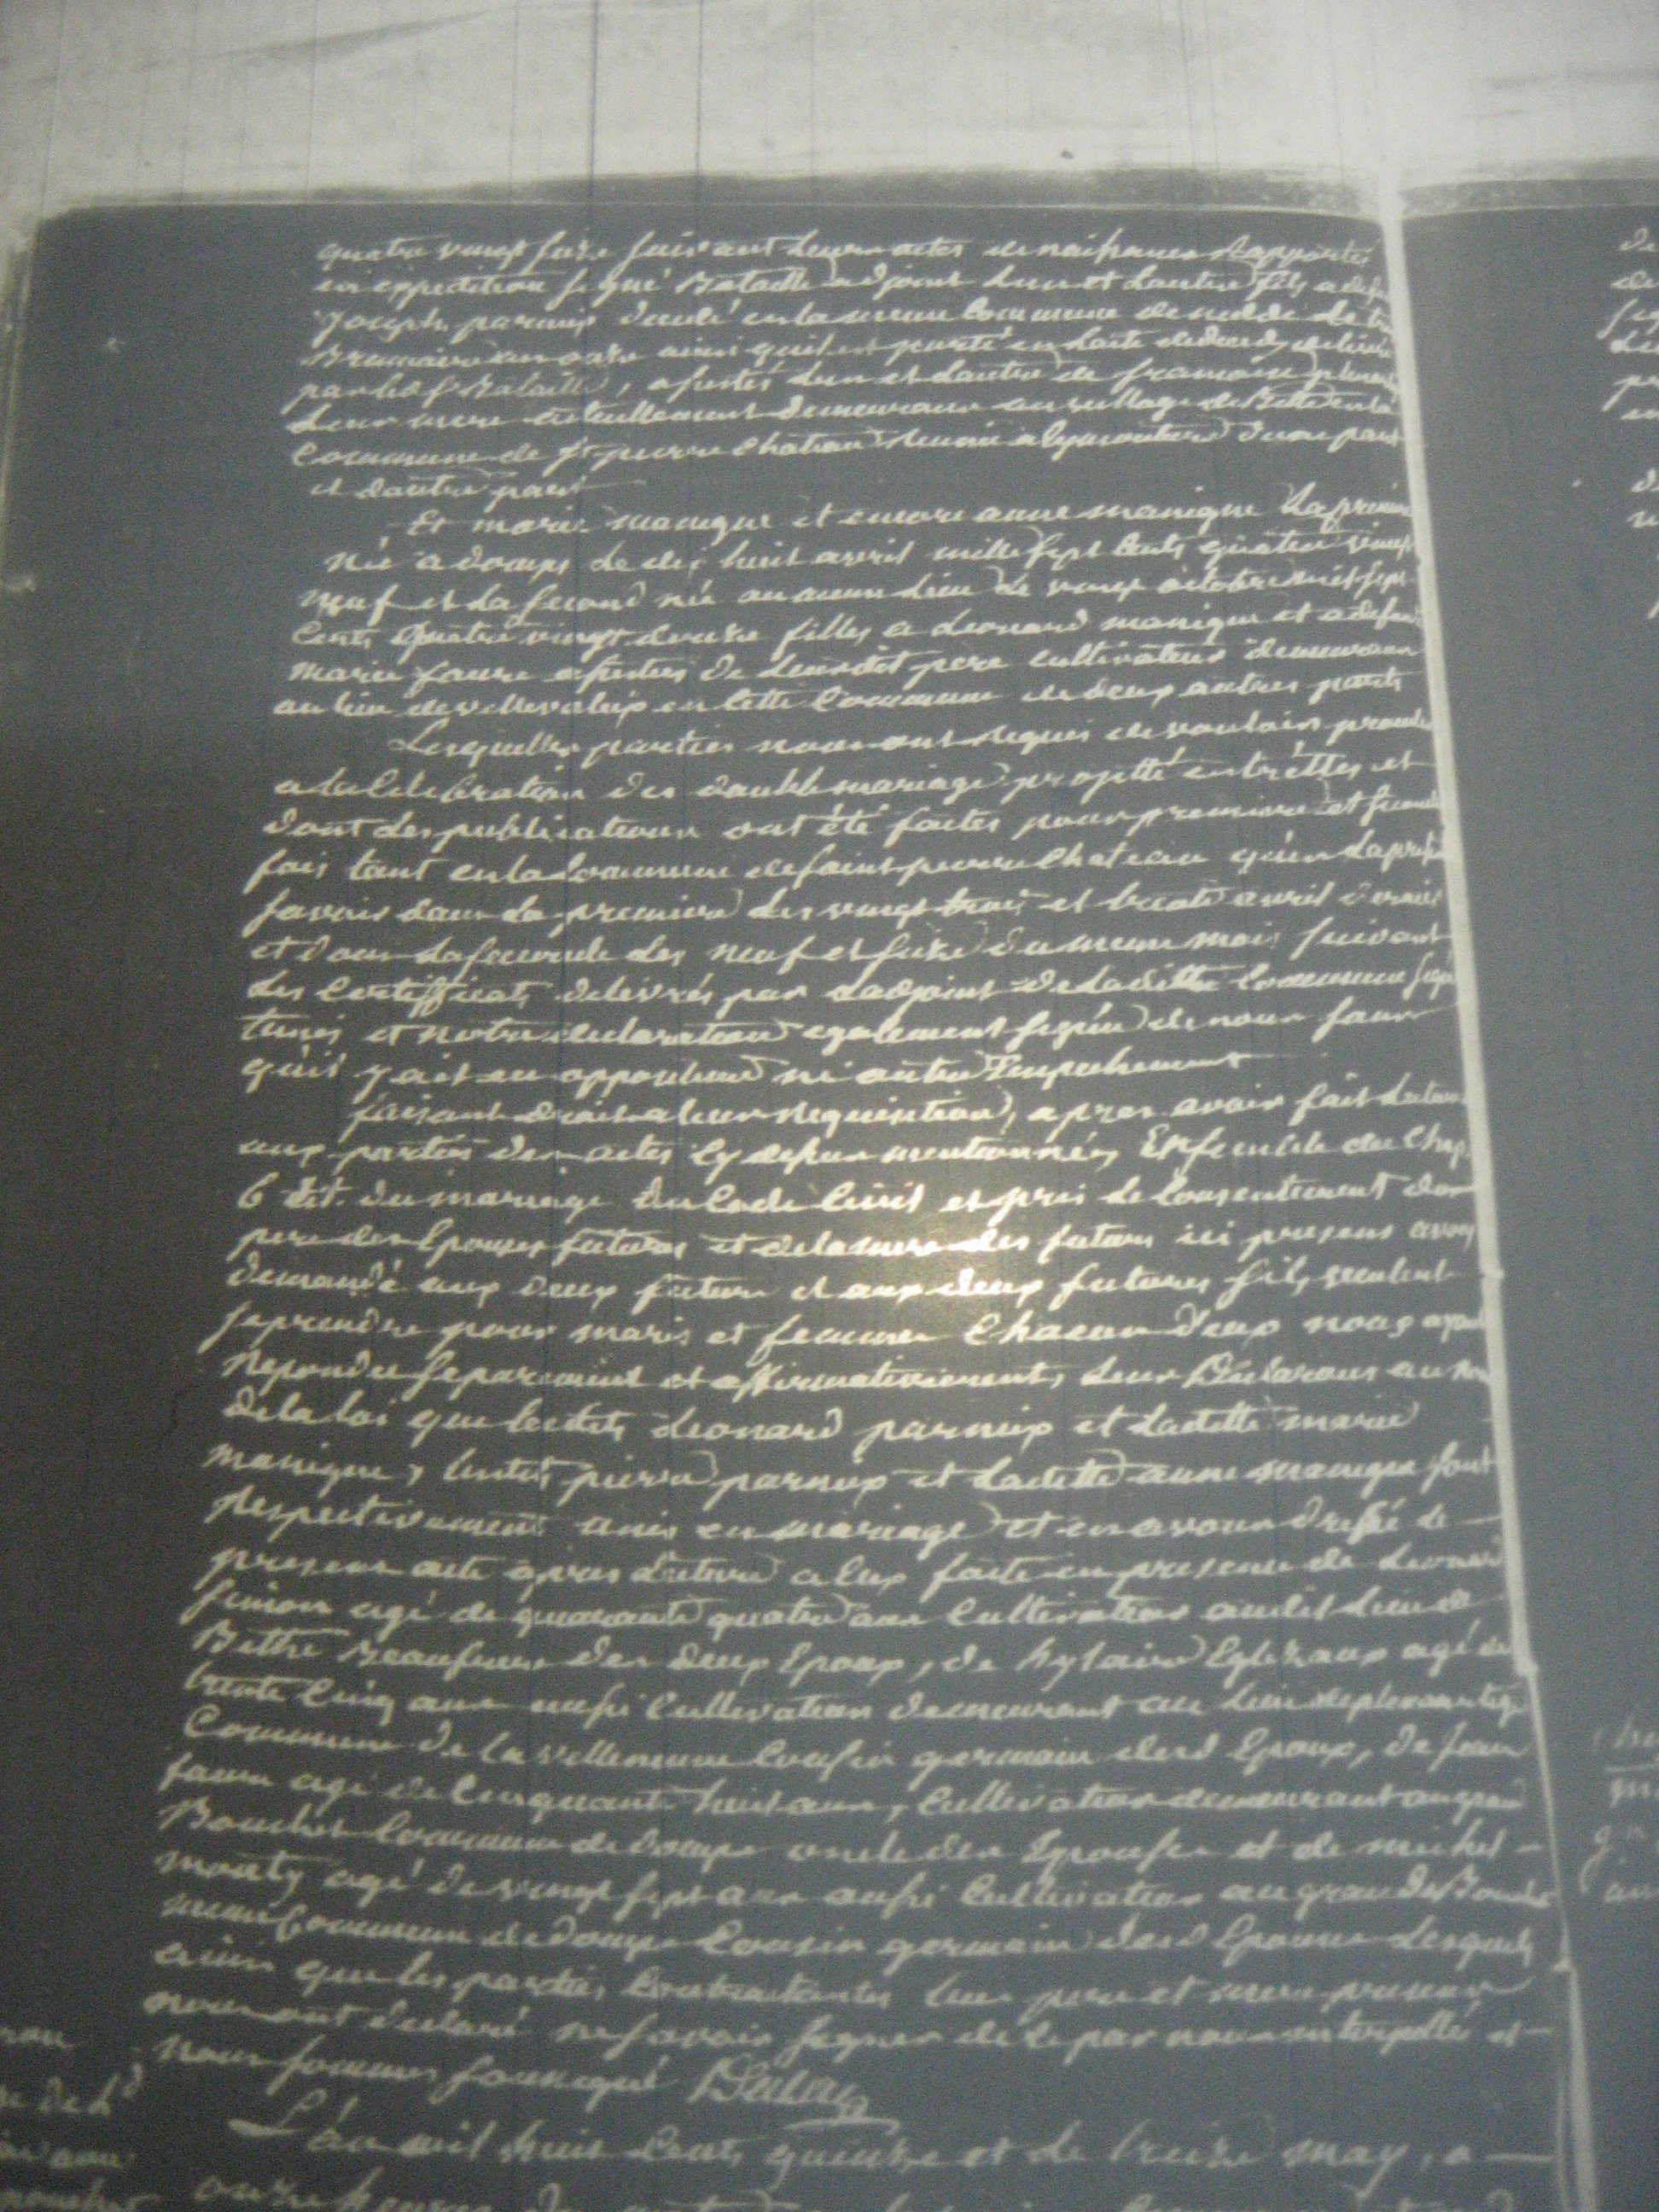 quatre vingt seize suivant leurs actes de naissances rapportés
en expedition signé Bataille adjoint l'un et l'autre fils a defunt
Joseph parneix decedé en la meme commune de nedde le
Brumaire an onze ainsi qu'il est porté en l'acte de deces delivré
par led. Sr Bataille, assistés l'un et l'autre de francoise
leur mere actuellement demeurant au village de Bette en la
Commune de St pierre Chateau reunie a Eymoutiers d'une part
et d'autre part
Et marie manigne et encore anne manigne la premiere
née a domps le dix huit avril mille sept cents quatre vingt
neuf et la second née au meme lieu le vingt octobre mil sept
cents quatre vingt douze filles a Leonard manigne et a defunte
marie faure assistées de leurdit pere cultivateur demeurant
au lieu de en cette Commune de deux autres parts
Lesquelles parties nous ont requis de vouloir proceder
a la celebration du double mariage projetté entr'elles et
dont les publications ont été faites pour premiere et seconde
fois tant en la Commune de saint pierre Chateau qu'en la presente
savoir dans la premiere les vingt trois et trente avril dernier
et dans la seconde les neuf et seize du meme mois suivant
les certifficats delivrés par l'adjoint de laditte Commune
et notre declaration egalement signée de nous sans
qu'il y ait eu opposition ni autre Empechement
faisant droit a leur requisition, apres avoir fait lecture
aux parties des actes cy dessus mentionnés Ensemble du Chap.
6 tit. du mariage du Code Civil et pris le consentement du
pere des Epouses futures et de la mere des futurs ici presens avons
demandé aux deux futurs et aux deux futures s'ils veulent
se prendre pour maris et femmes Chacun d'eux nous ayant
repondu separement et affirmativement, leur Declarons au nom
de la loi que lesdits Leonard parneix et laditte marie
manigne, ledit pierre parneix et laditte anne manigne sont
respectivement unis en mariage et en avons dressé le
present acte apres lecture a eux faite en presence de Leonard
simon agé de quarante quatre ans Cultivateur audit lieu de
Bette Beaufrere des deux Epoux, de hylaire Eglizaux agé de
trente Cinq ans aussi Cultivateur demeurant au lieu de
Commune de la villeneuve Cousin germain desd Epoux, de Jean
faure agé de Cinquante huit ans, Cultivateur demeurant au grand
Bouchet Commune de domps oncle des Epouses et de michel
monty agé de vingt sept ans aussi Cultivateur au grand Bouchet
meme Commune de domps Cousin germain desd Epouses Lesquels
ainsi que les parties Contractantes leur pere et mere presens
nous ont declaré ne savoir signer de ce par nous interpellés et
nous sommes soussigné
L'an mil huit Cents quinze et le treize may, a
onze heures du